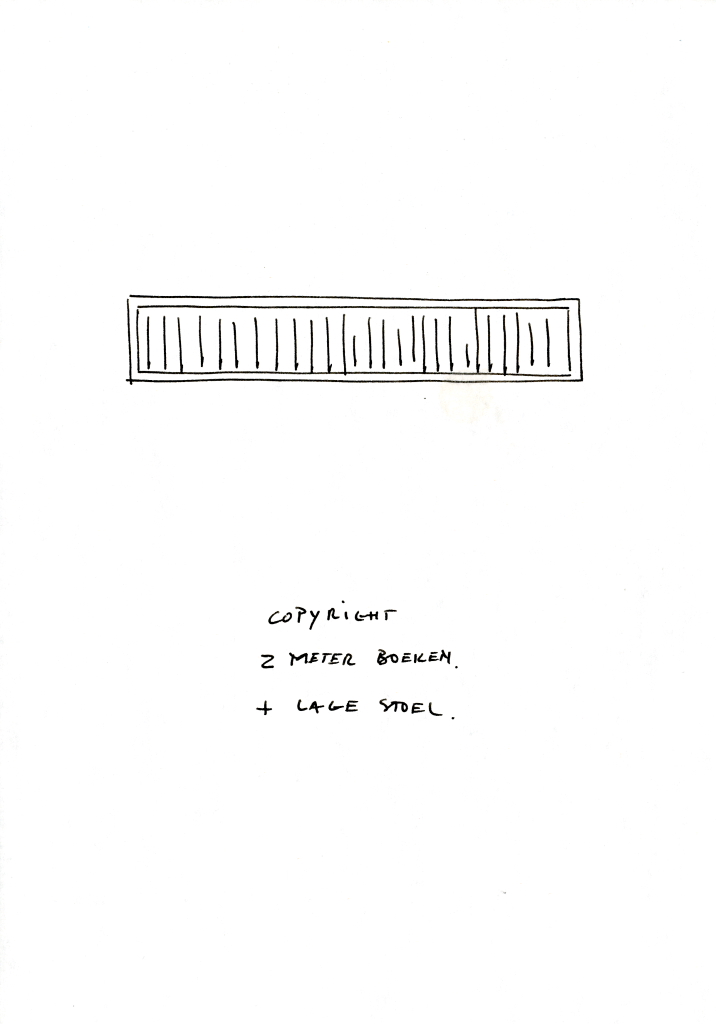 COPYRIGHT
2 METER BOEKEN.
+ LAGE STOEL.